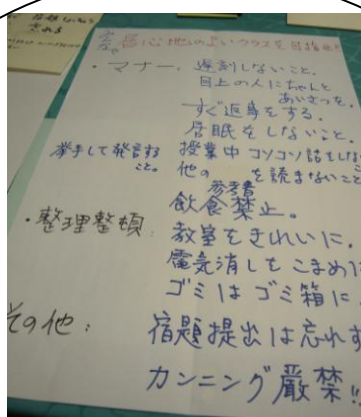 みんなで居心地のよいクラスを目指せ!!
・マナー:遅刻しないこと。
目上の人にちゃんと
あいさつを。
すぐ返事をする。
居眠をしないこと。
挙手して発言する
こと。
授業中コソコソ話をしな
他の参考書を読まないこと
飲食禁止。
・整理整頓:教室をきれいに。
電気消しをこまめに
ゴミはゴミ箱に
その他:宿題提出は忘れず
カンニング厳禁!!